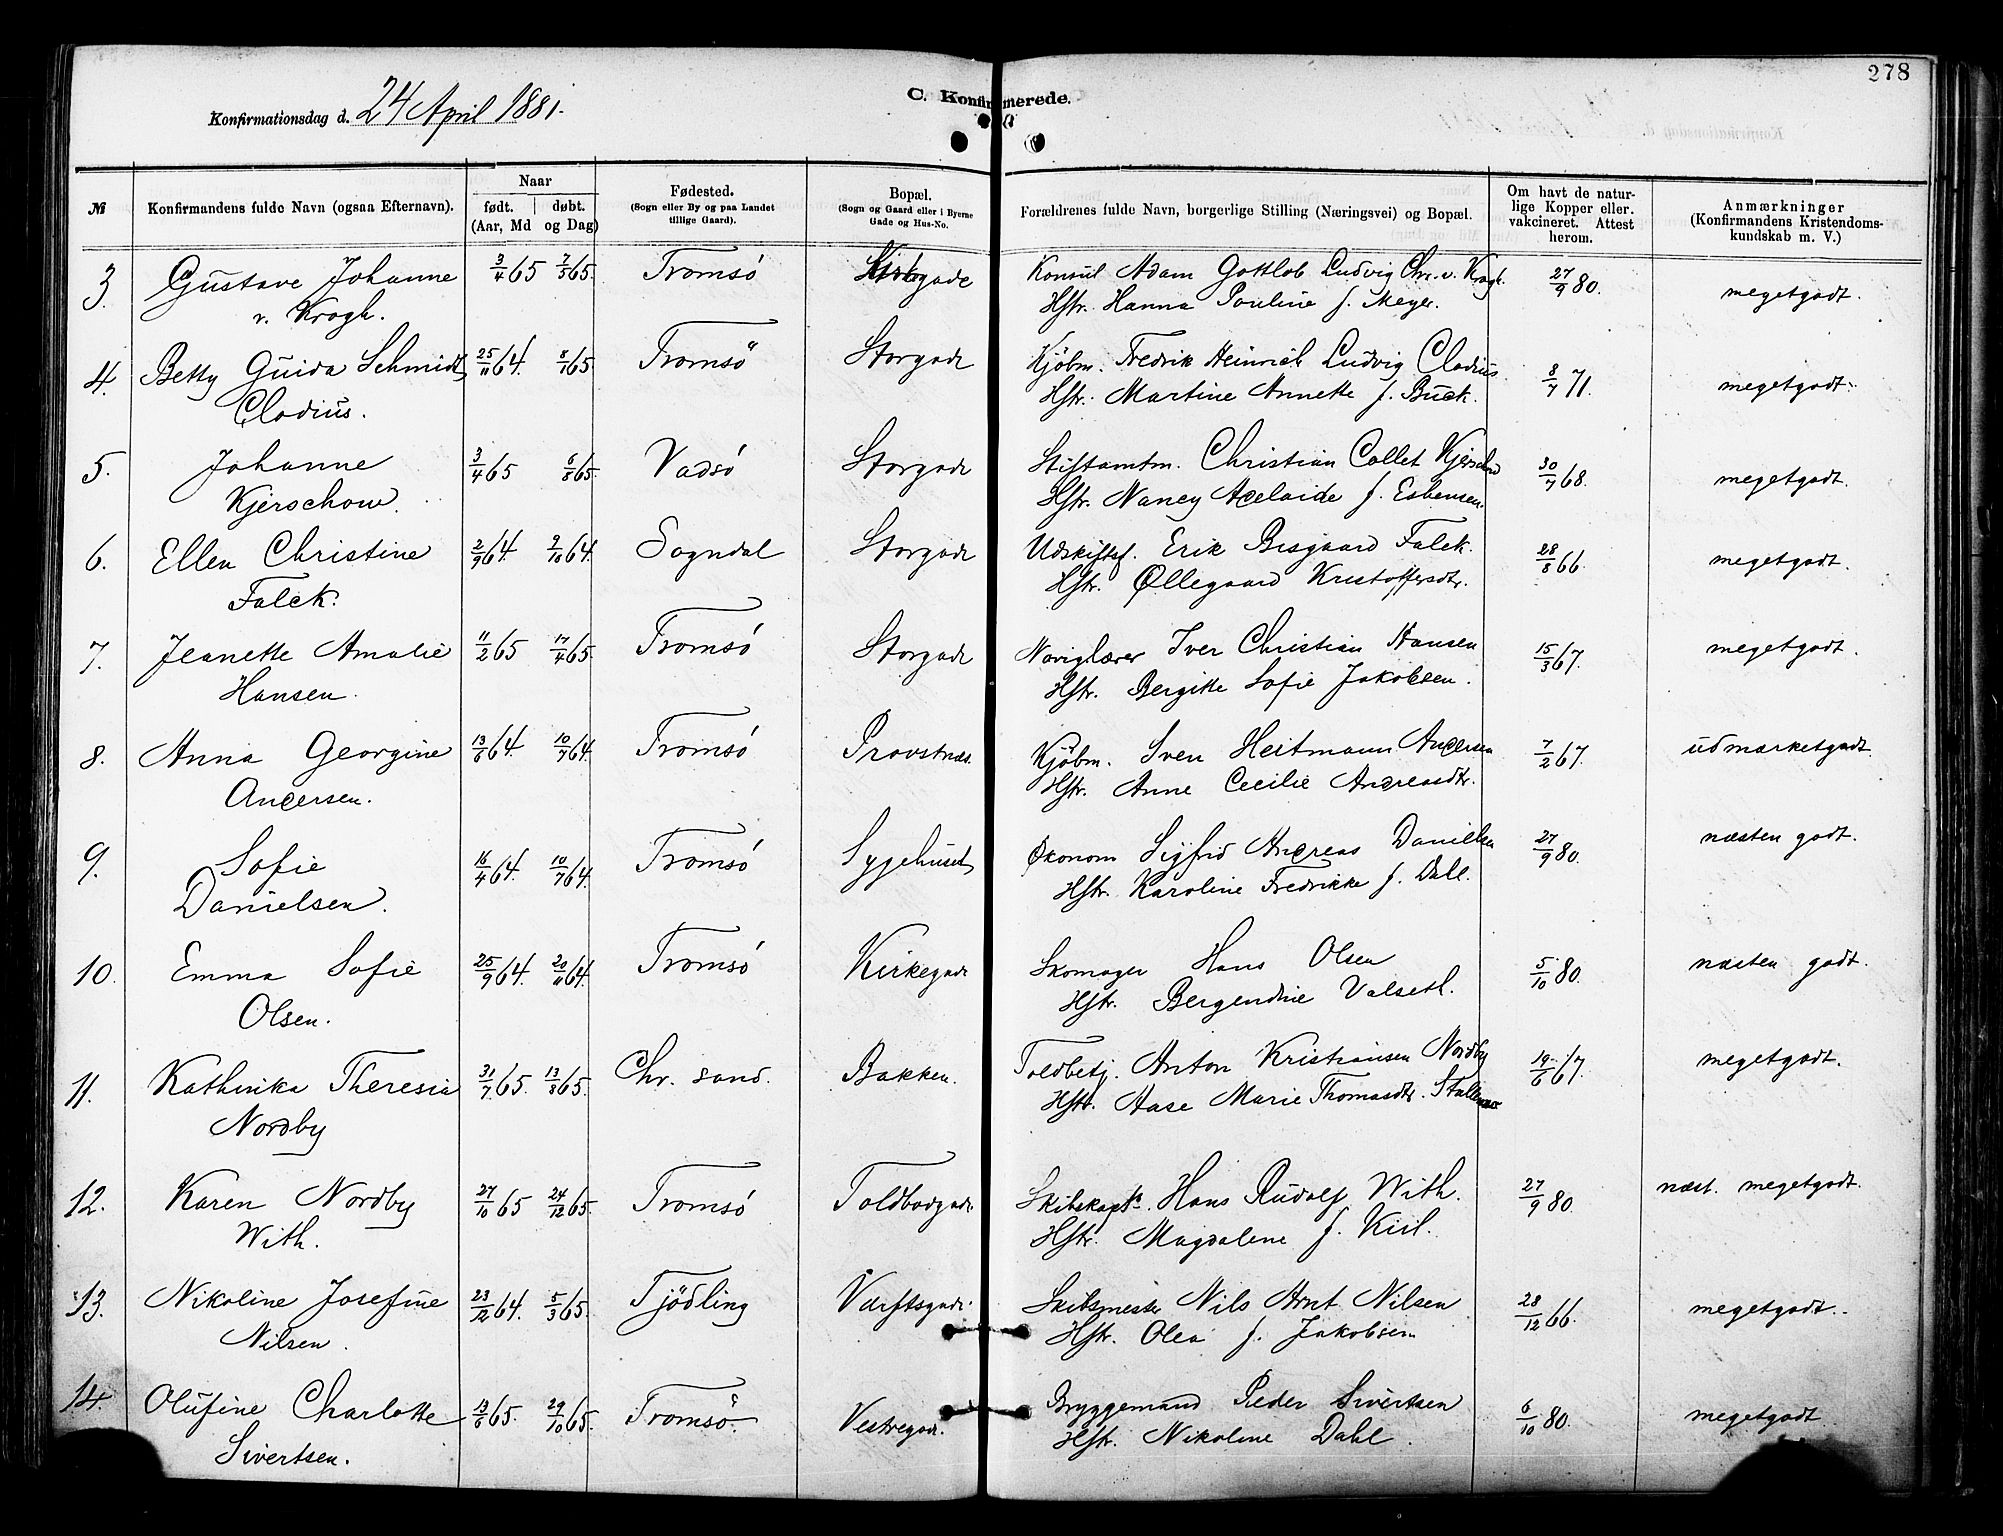 278
C. Konfirmerede.
Konfirmationsdag d. 24 April 1881.
№
Konfirmandens fulde Navn (ogsaa Efternavn).
Naar
født. | døbt.
(Aar, Md og Dag)
Fødested.
(Sogn eller By og paa Landet
tillige Gaard).
Bopæl.
(Sogn og Gaard eller i Byerne
Gade og Hus-No.
Forældrenes fulde Navn, borgerlige Stilling (Næringsvei) og Bopæl.
Om havt de natur-
lige Kopper eller.
vakcineret. Attest
herom.
Anmærkninger
(Konfirmandens Kristendoms-
kundskab m. V.)
3. Gustave Johanne 3/4 65 7/5 65. Tromsø Konsul Adam Gottlob Ludvig Chr. v. Krogh. 27/9 80. megetgodt.
v. Krogh. Hstr. Hanna Pouline f. Meyer.
4. Betty Guida Schmidt 25/11 64. 8/1 65. Tromsö Storgade Kjöbm. Fredrik Heinrich Ludvig Clodius 8/7 71. megetgodt.
Clodius. Hstr. Martine Annette f. Buck.
5. Johanne 3/4 65 6/8 65. Vadsö Storgade Stiftamtm. Christian Collet Kjerschow 30/7 68. megetgodt.
Kjerschow. Hstr. Nancy Adelaide f. Esbensen.
6. Ellen Christine 2/9 64. 9/10 64. Sogndal Storgade Udskiftsf. Erik Bisgaard Falck. 28/8 66. megetgodt.
Falck. Hstr. Øllegaard Kristoffersdtr.
7. Jeanette Amalie 11/2 65 17/4 65. Tromsö Storgade Naviglærer Iver Christian Hansen 15/3 67. megetgodt.
Hansen. Hstr. Bergitte Sofie Jakobsen.
8. Anna Georgine 13/6 64. 10/7 64. Tromsö Provstnæs. Kjöbm. Sven Heitmann Andersen 7/2 67. udmærketgodt.
Andersen. Hstr. Anne Cecilie Andreasdtr.
9. Sofie 16/4 64. 10/7 64. Tromsö Sygehuset Økonom Sigfrid Andreas Danielsen 27/9 80. næsten godt.
Danielsen. Hstr. Karoline Fredrikke f. Dall.
10. Emma Sofie 25/9 64. 20/11 64. Tromsö Kirkegade Skomager Hans Olsen 5/10 80. næsten godt.
Olsen. Hstr. Bergendine Valseth.
11. Kathinka Theresia 31/7 65. 13/8 65. Chr. sand. Bakken. Toldbetj. Anton Kristiansen Nordby 19/6 67. megetgodt.
Nordby Hstr. Aase Marie Thomasdtr.
12. Karen Nordby 27/10 65 24/12 65. Tromsö Toldbodgade Skibskapt. Hans Rudolf With. 27/9 80. næst. megetgodt.
With. Hstr. Magdalene f. Kiil.
13. Nikoline Josefine 23/12 64. 5/3 65. Tjödling Værftsgade Skibsmester Nils Arnt Nilsen 28/12 66. megetgodt.
Nilsen. Hstr. Olea f. Jakobsen
14. Olufine Charlotte 13/6 65. 29/10 65. Tromsö. Vestregade. Bryggemand Peder Sivertsen 6/10 80. megetgodt
Sivertsen. Hstr. Nikoline Dahl.